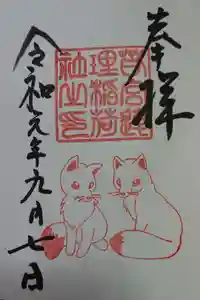 奉拝
理稲荷
社之印
令和元年九月七日